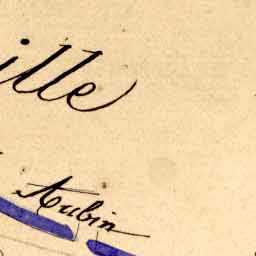 ille
Aubin